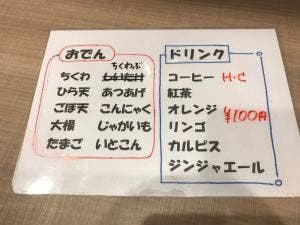 おでん
ちくわぶ
ちくわ しいたけ
ひら天 あつあげ
ごぼ天 こんにゃく
大根 じゃがいも
たまご いとこん
ドリンク
コーヒー H・C
紅茶
オレンジ ¥100円
リンゴ
カルピス
ジンジャエール